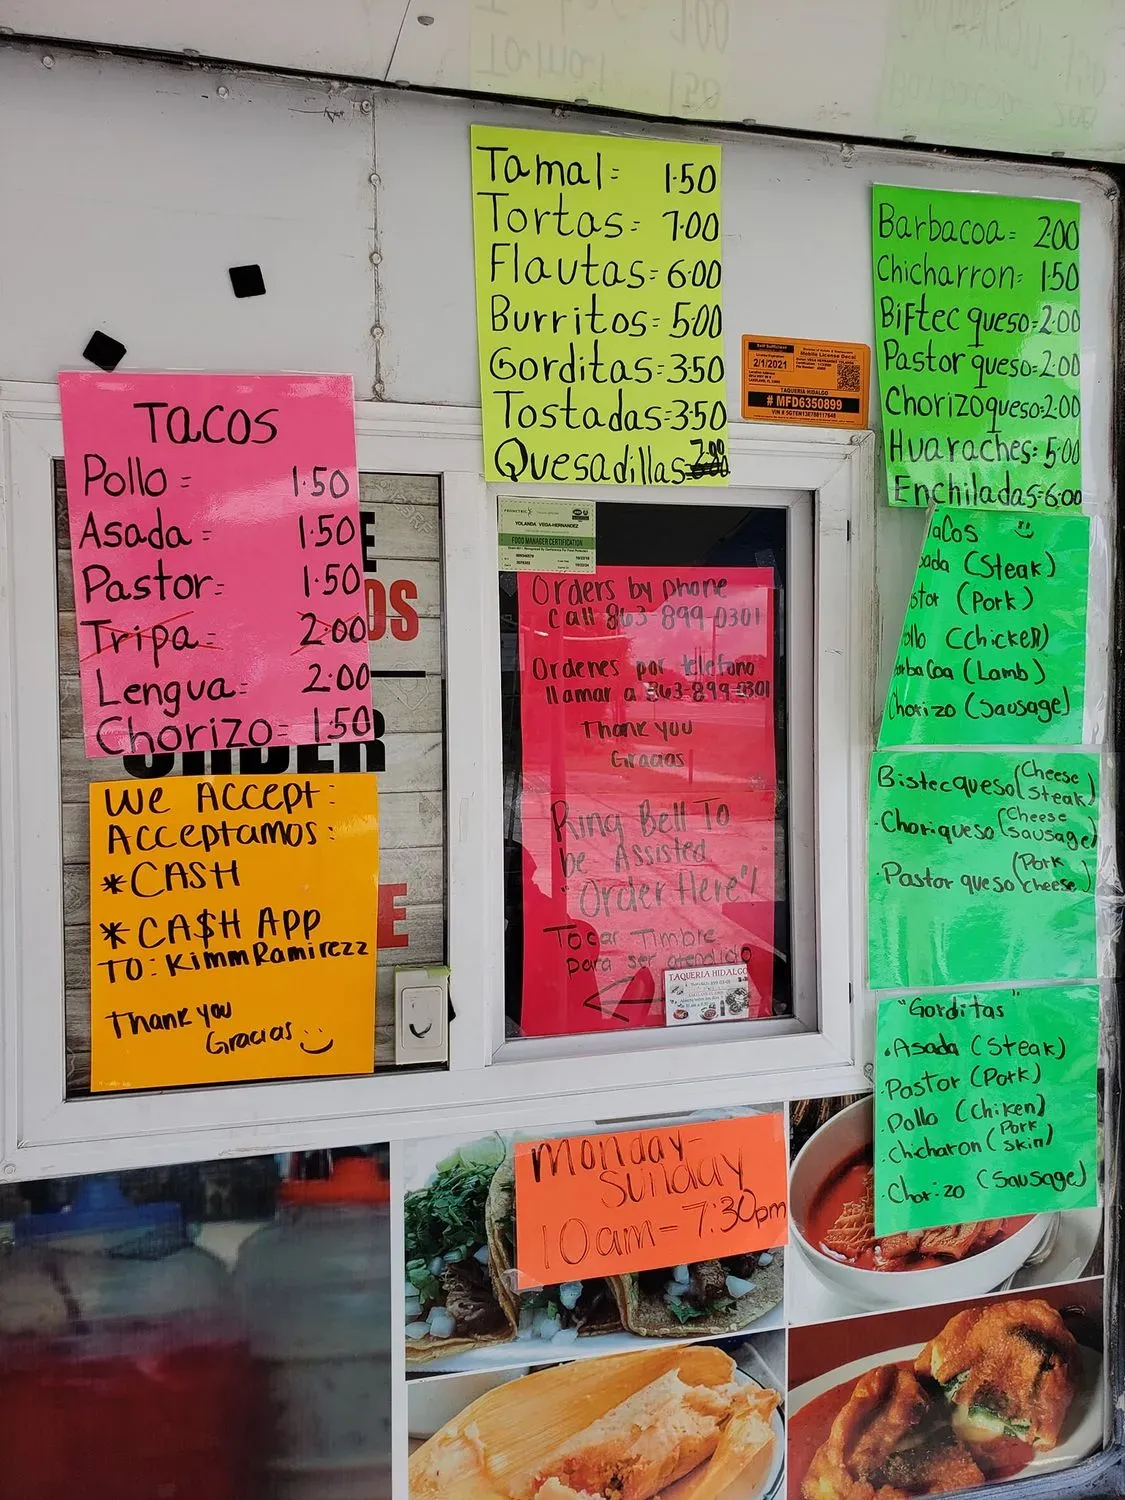 Tamal = 1.50
Tortas = 7.00
Flautas = 6.00
Burritos = 5.00
Gorditas = 3.50
Tostadas = 3.50
Quesadillas 7.00
Barbacoa = 2.00
Chicharron = 1.50
Biftec queso = 2.00
Pastor queso = 2.00
Chorizo queso = 2.00
Huaraches = 5.00
Enchiladas = 6.00
2/1/2021
Mobile License Decal
TAQUERIA HIDALGO
# MFD6350899
TACOS
Pollo = 1.50
Asada = 1.50
Pastor = 1.50
Tripa = 2.00
Lengua = 2.00
Chorizo = 1.50
ORDER
We Accept:
Acceptamos:
*CASH
*CA$H APP
TO: KimmRamirezz
Thank you
Gracias
YOLANDA VEGA-HERNANDEZ
FOOD MANAGER CERTIFICATION
Orders by phone
Call 863-899-0301
Ordenes por telefono
llamar a 863-899-0301
Thank you
Gracias
Ring Bell To
be Assisted
"Order Here"!
Tocar Timbre
para ser atendido
TAQUERIA HIDALGO
acos
sada (Steak)
stor (Pork)
ollo (Chicken)
rba coa (Lamb)
Chorizo (Sausage)
Bistec queso (Cheese Steak)
Choriqueso (Cheese Sausage)
Pastor queso (Pork cheese)
"Gorditas"
Asada (Steak)
Pastor (Pork)
Pollo (Chiken)
Chicharon (Pork Skin)
Chorizo (Sausage)
Monday-
Sunday
10am-7:30pm